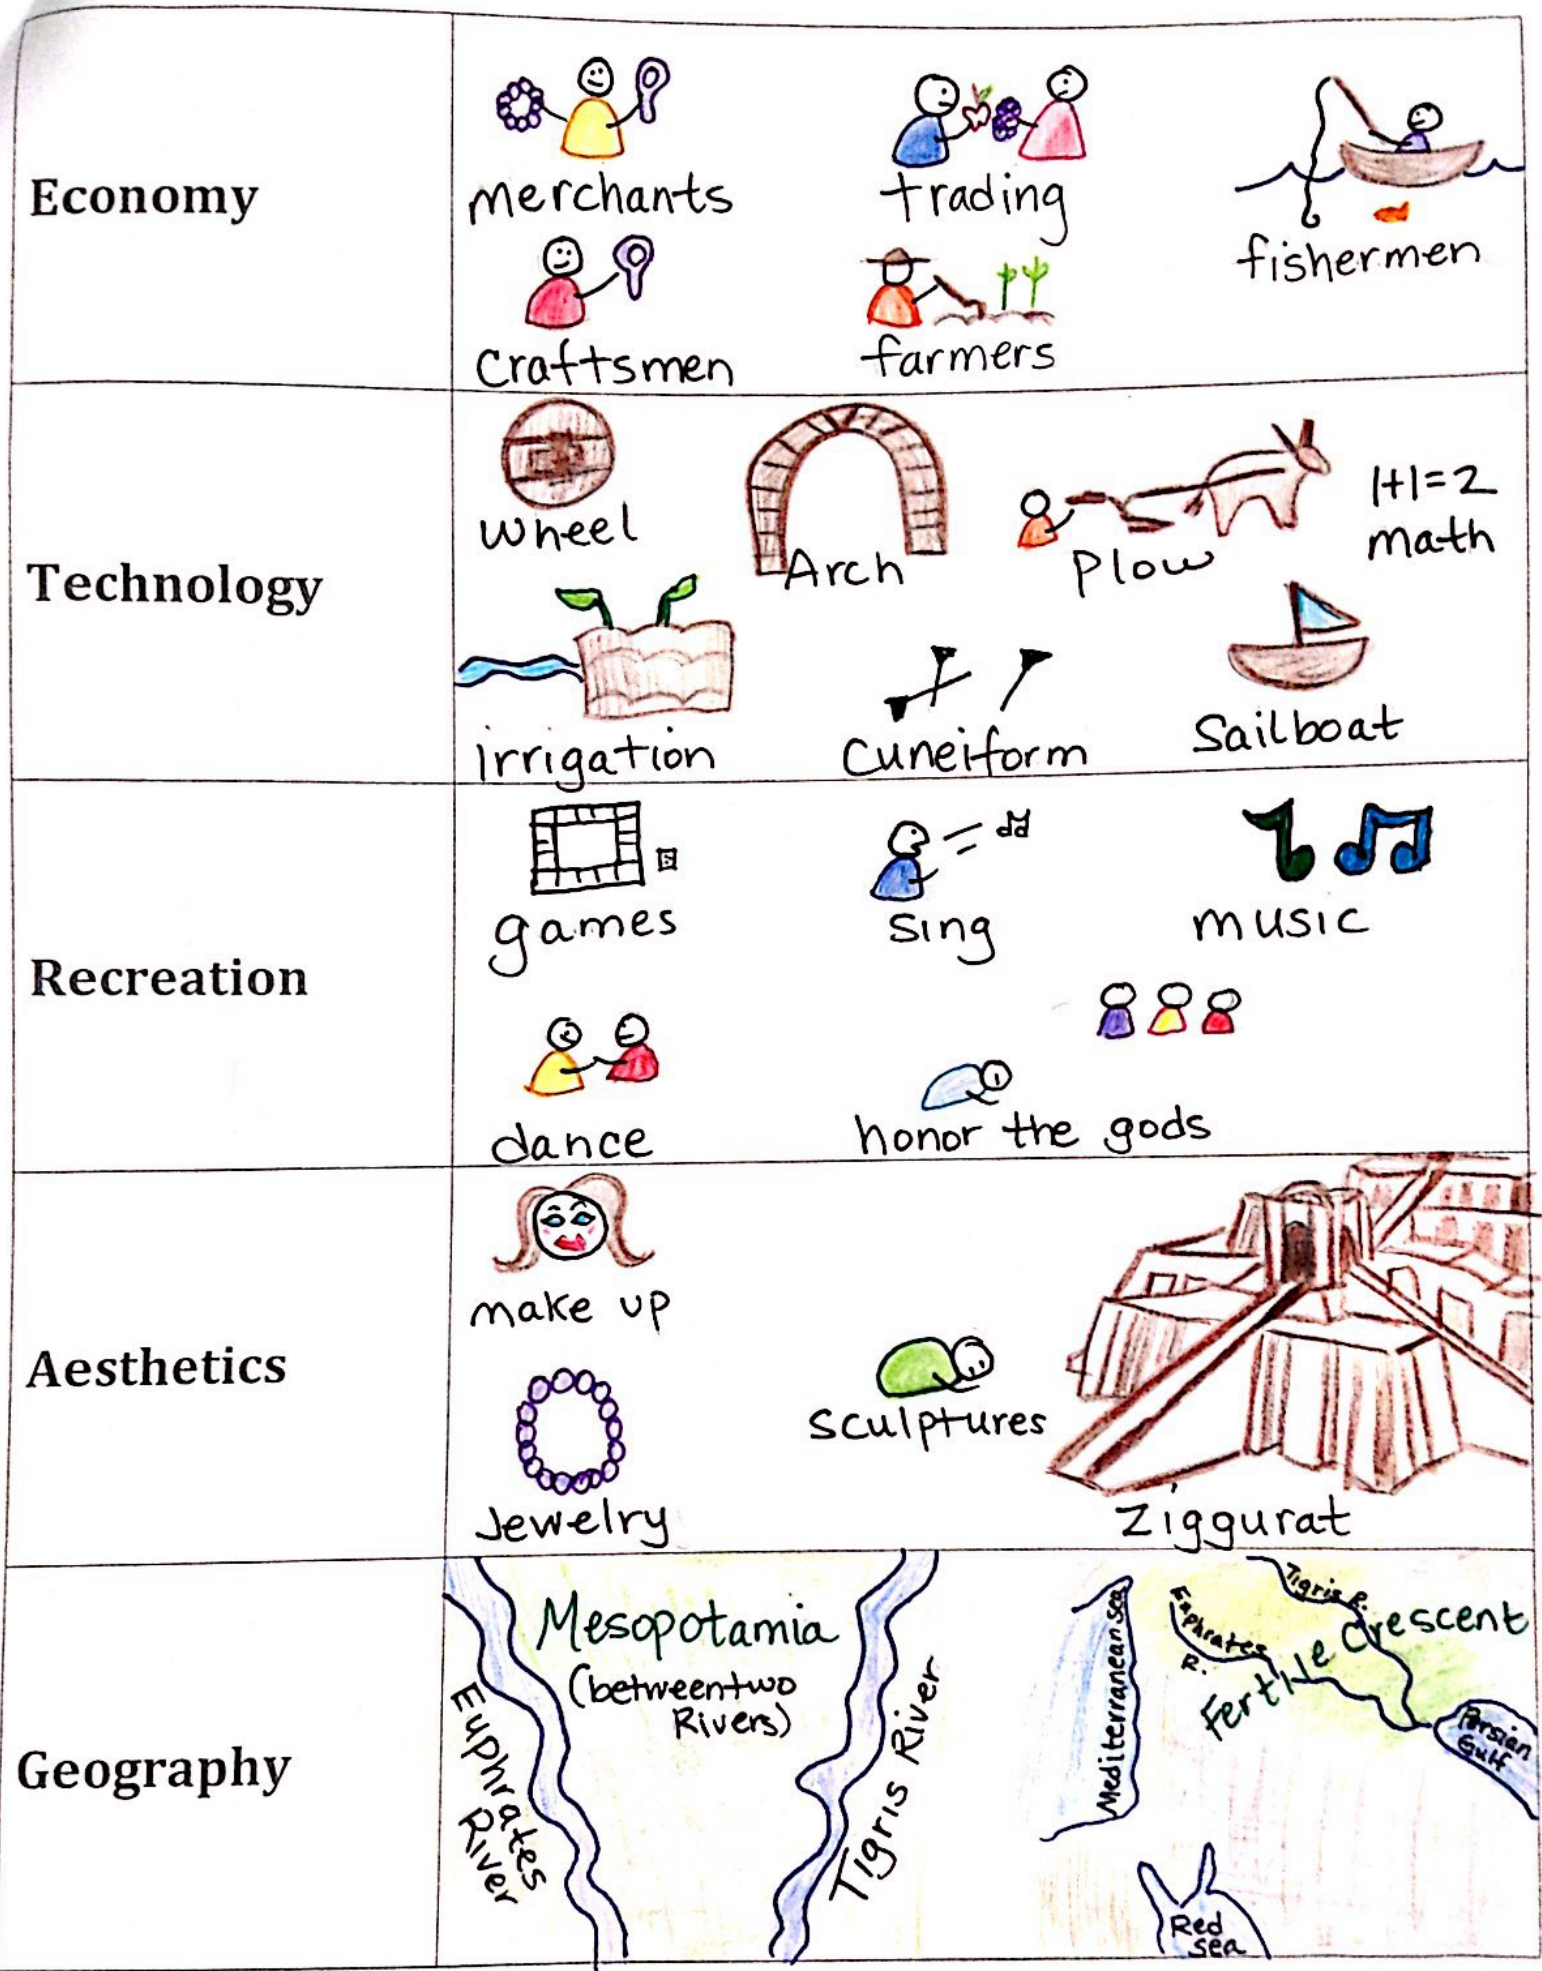 Economy
merchants
trading
fishermen
craftsmen
farmers
Technology
wheel
Arch
Plow
1+1=2
math
irrigation
Cuneiform
Sailboat
Recreation
games
sing
music
dance
honor the gods
Aesthetics
make up
sculptures
Jewelry
Ziggurat
Geography
Euphrates
River
Mesopotamia
(between two
Rivers)
Tigris River
Mediterranean sea
Euphrates
R.
Tigris R.
Fertile Crescent
Persian
Gulf
Red
sea